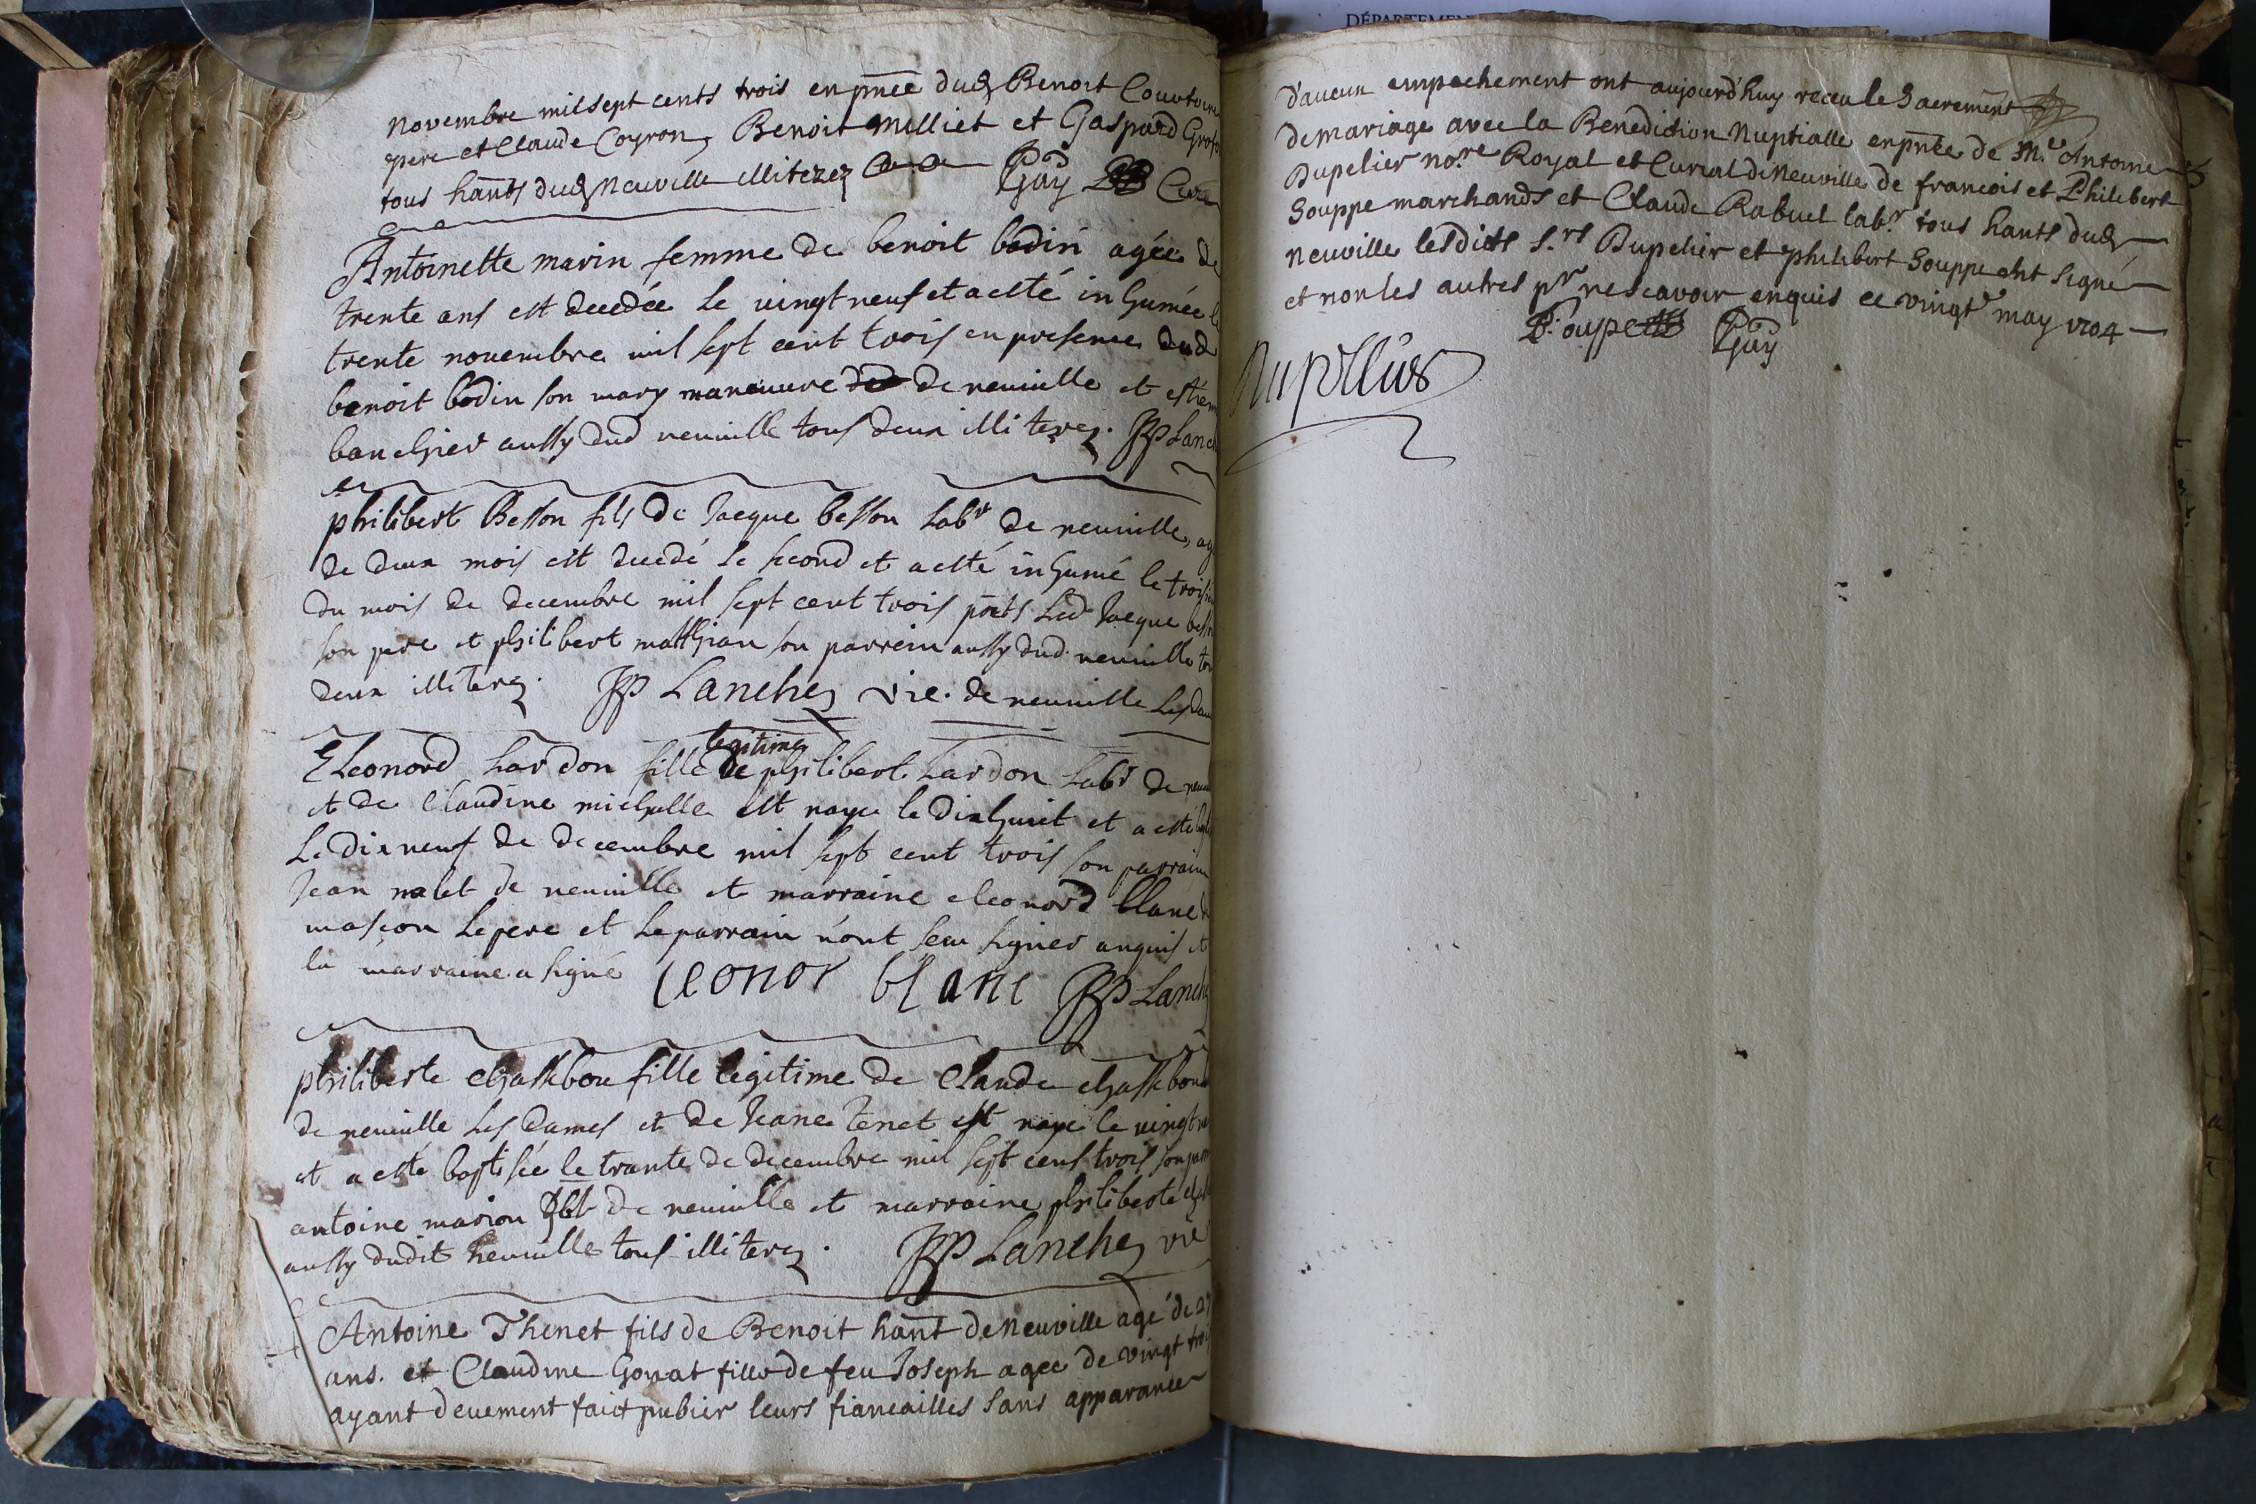 DÉPARTEMEN
novembre mil sept cents trois en pnce dud Benoit
pere et Claude Coyron, Benoit Milliet et Gaspard
tous hants dud Neuville illiterez Guy Curé
Antoinette marin femme de benoit bodin agée de
trente ans est decedée le vingt neuf et a esté inhumée le
trente novembre mil sept cent trois en presence dud
benoit bodin son mary maneuvre de neuuille et
banchier aussy dud neuuille tous deux illiterez. JP Lanche
philibert Besson fils de Jacque besson labr de neuuille, agé
de deux mois est decedé le second et a esté inhumé le troisie
du mois de decembre mil sept cent trois pnts led Jacque besson
son pere et philibert matthian son parrein aussy dud. neuuille tous
deux illiterez. JP Lanchez vic. de neuuille les dam
legitime
Eleonord hardon fille de philibert hardon labr de neuu
et de Claudine michelle est naye le dixhuict et a esté
Le dixneuf de decembre mil sept cent trois son parrain
Jean nalet de neuuille et marraine eleonord blanc de
mascon le pere et le parrain n'ont seu signer anquis et
la marraine a signé leonor blanc JP Lanche
philiberte chassibou fille legitime de Claude chassibou
de neuuille les dames et de Jeane Tenet est naye le vingt
et a esté baptisée le trante de decembre mil sept cens trois son
antoine marion de neuuille et marraine philiberte
aussy dudit neuuille tous illiterez. JP Lanchez vic
Antoine Thenet fils de Benoit hant de Neuville agé de 27
ans. et Claudine Gonat fille de feu Joseph agee de vingt trois
ayant deuement faict pubier leurs fiancailles sans apparance
d'aucun empechement ont aujourd'huy receu le Sacrement
de mariage avec la Benediction Nuptialle en pnce de Me Antoine
Dupelier nore Royal et Curial de Neuville de francois et Philibert
Souppe marchands et Claude Rabuel labr. tous hants dud
Neuville lesdicts srs Dupelier et philibert Souppe ont signé
et non les autres pr ne scavoir enquis ce vingt may 1704
P. Soupe Guy
Dupellier